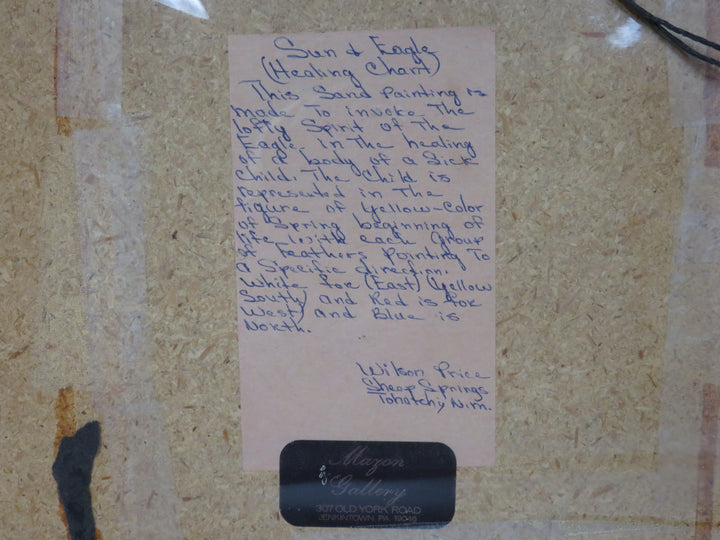 Sun & Eagle
(Healing Chant)
This Sand Painting is
made To invoke The
lofty Spirit of The
Eagle in The healing
of a body of a Sick
Child. The Child is
represented in The
figure of Yellow-Color
of Spring beginning of
life with each Group
of feathers Pointing To
a Specific direction.
White for (East) (Yellow
South) and Red is for
West) and Blue is
North.
Wilson Price
Sheep Springs
Tohatchi, N.M.
Mazon
Gallery
307 OLD YORK ROAD
JENKINTOWN, PA. 19046